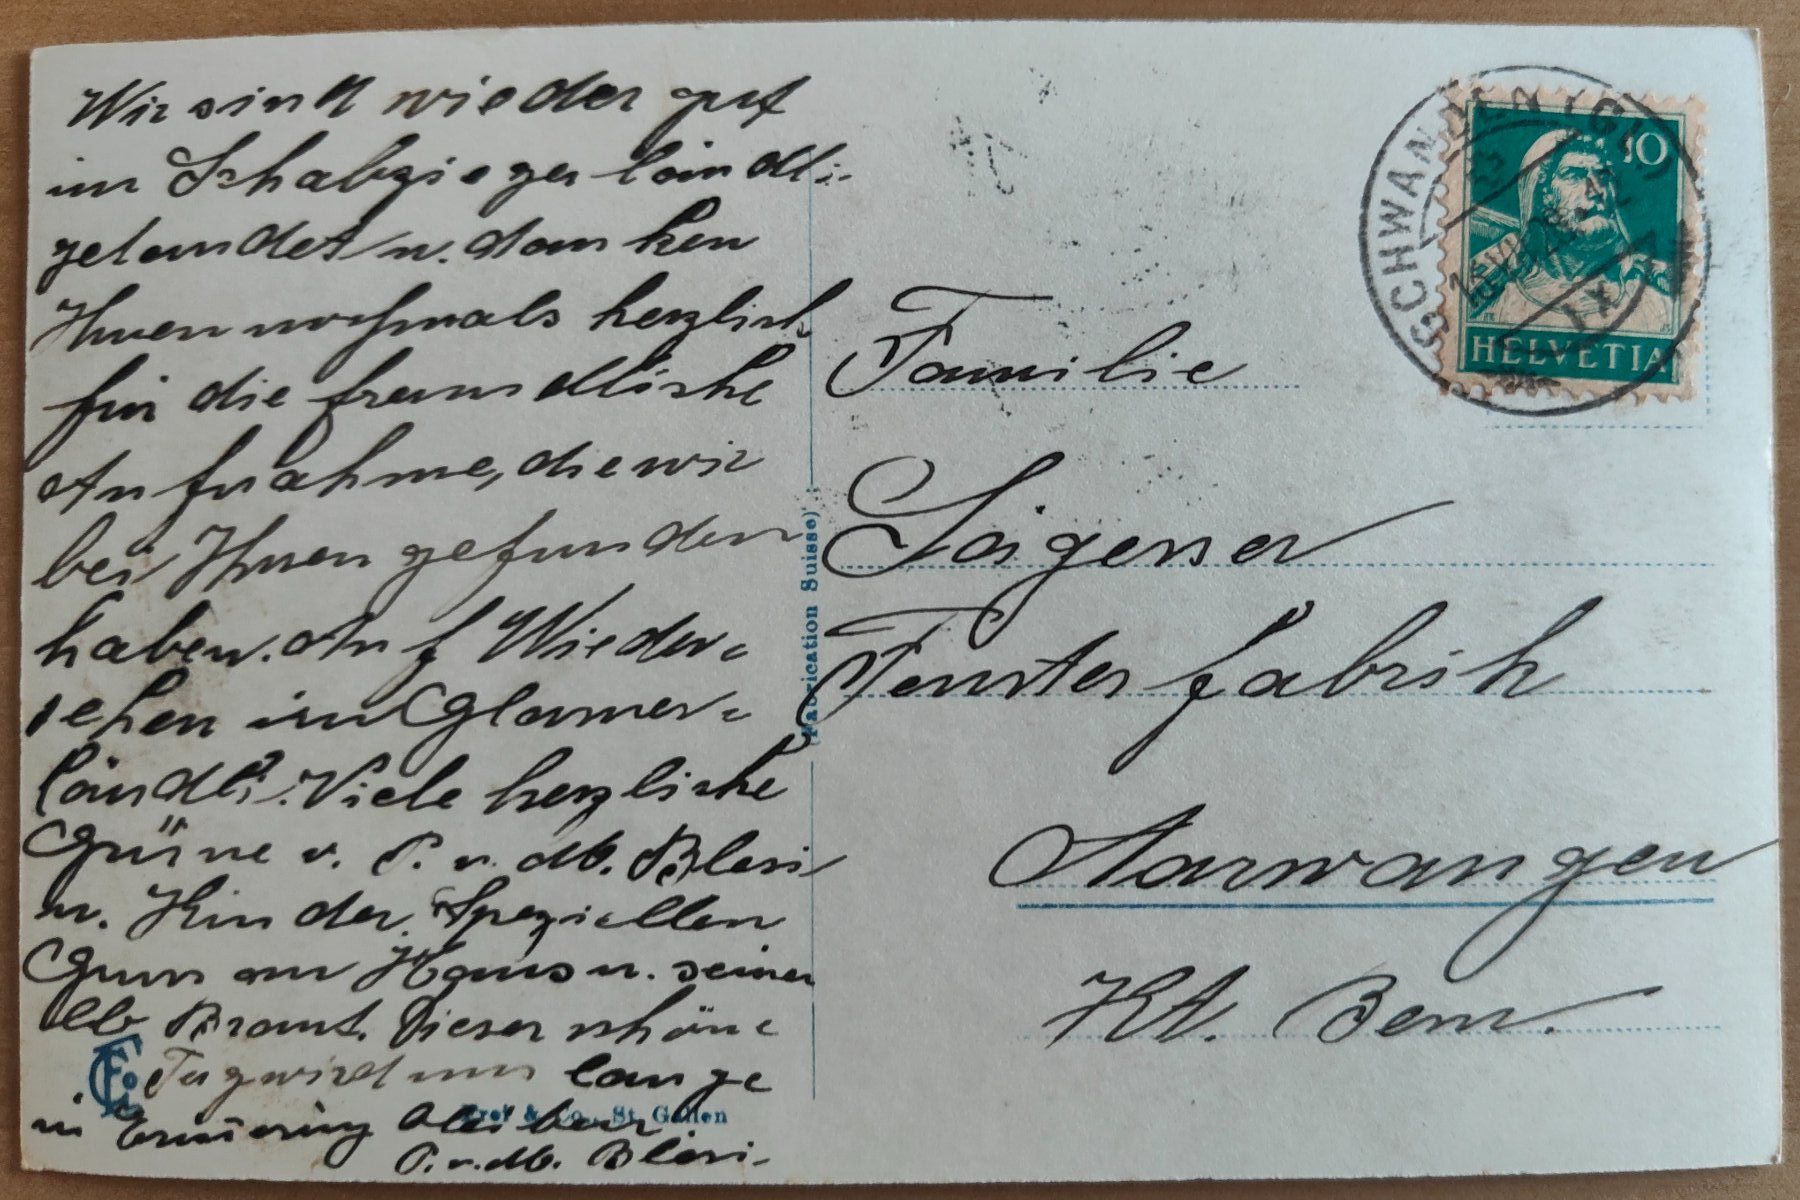 Wir sind wieder gut
im Schabziegerländli
gelandet u. danken
Ihnen nochmals herzlich
für die freundliche
Aufnahme, die wir
bei Ihnen gefunden
haben. Auf Wieder=
sehen im Glarner=
ländli. Viele herzliche
Grüsse v. P. u. Mb. Blesi
u. Kinder. Speziellen
Gruss an Hans u. seiner
lb Braut. Dieser schöne
Tag wird uns lange
in Erinnerung bleiben
P. u. Mb. Blesi.
(Fabrication Suisse)
Frei & Co., St. Gallen
SCHWANDEN (GL)
10
HELVETIA
Familie
Fensterfabrik
Aarwangen
Kt. Bern.